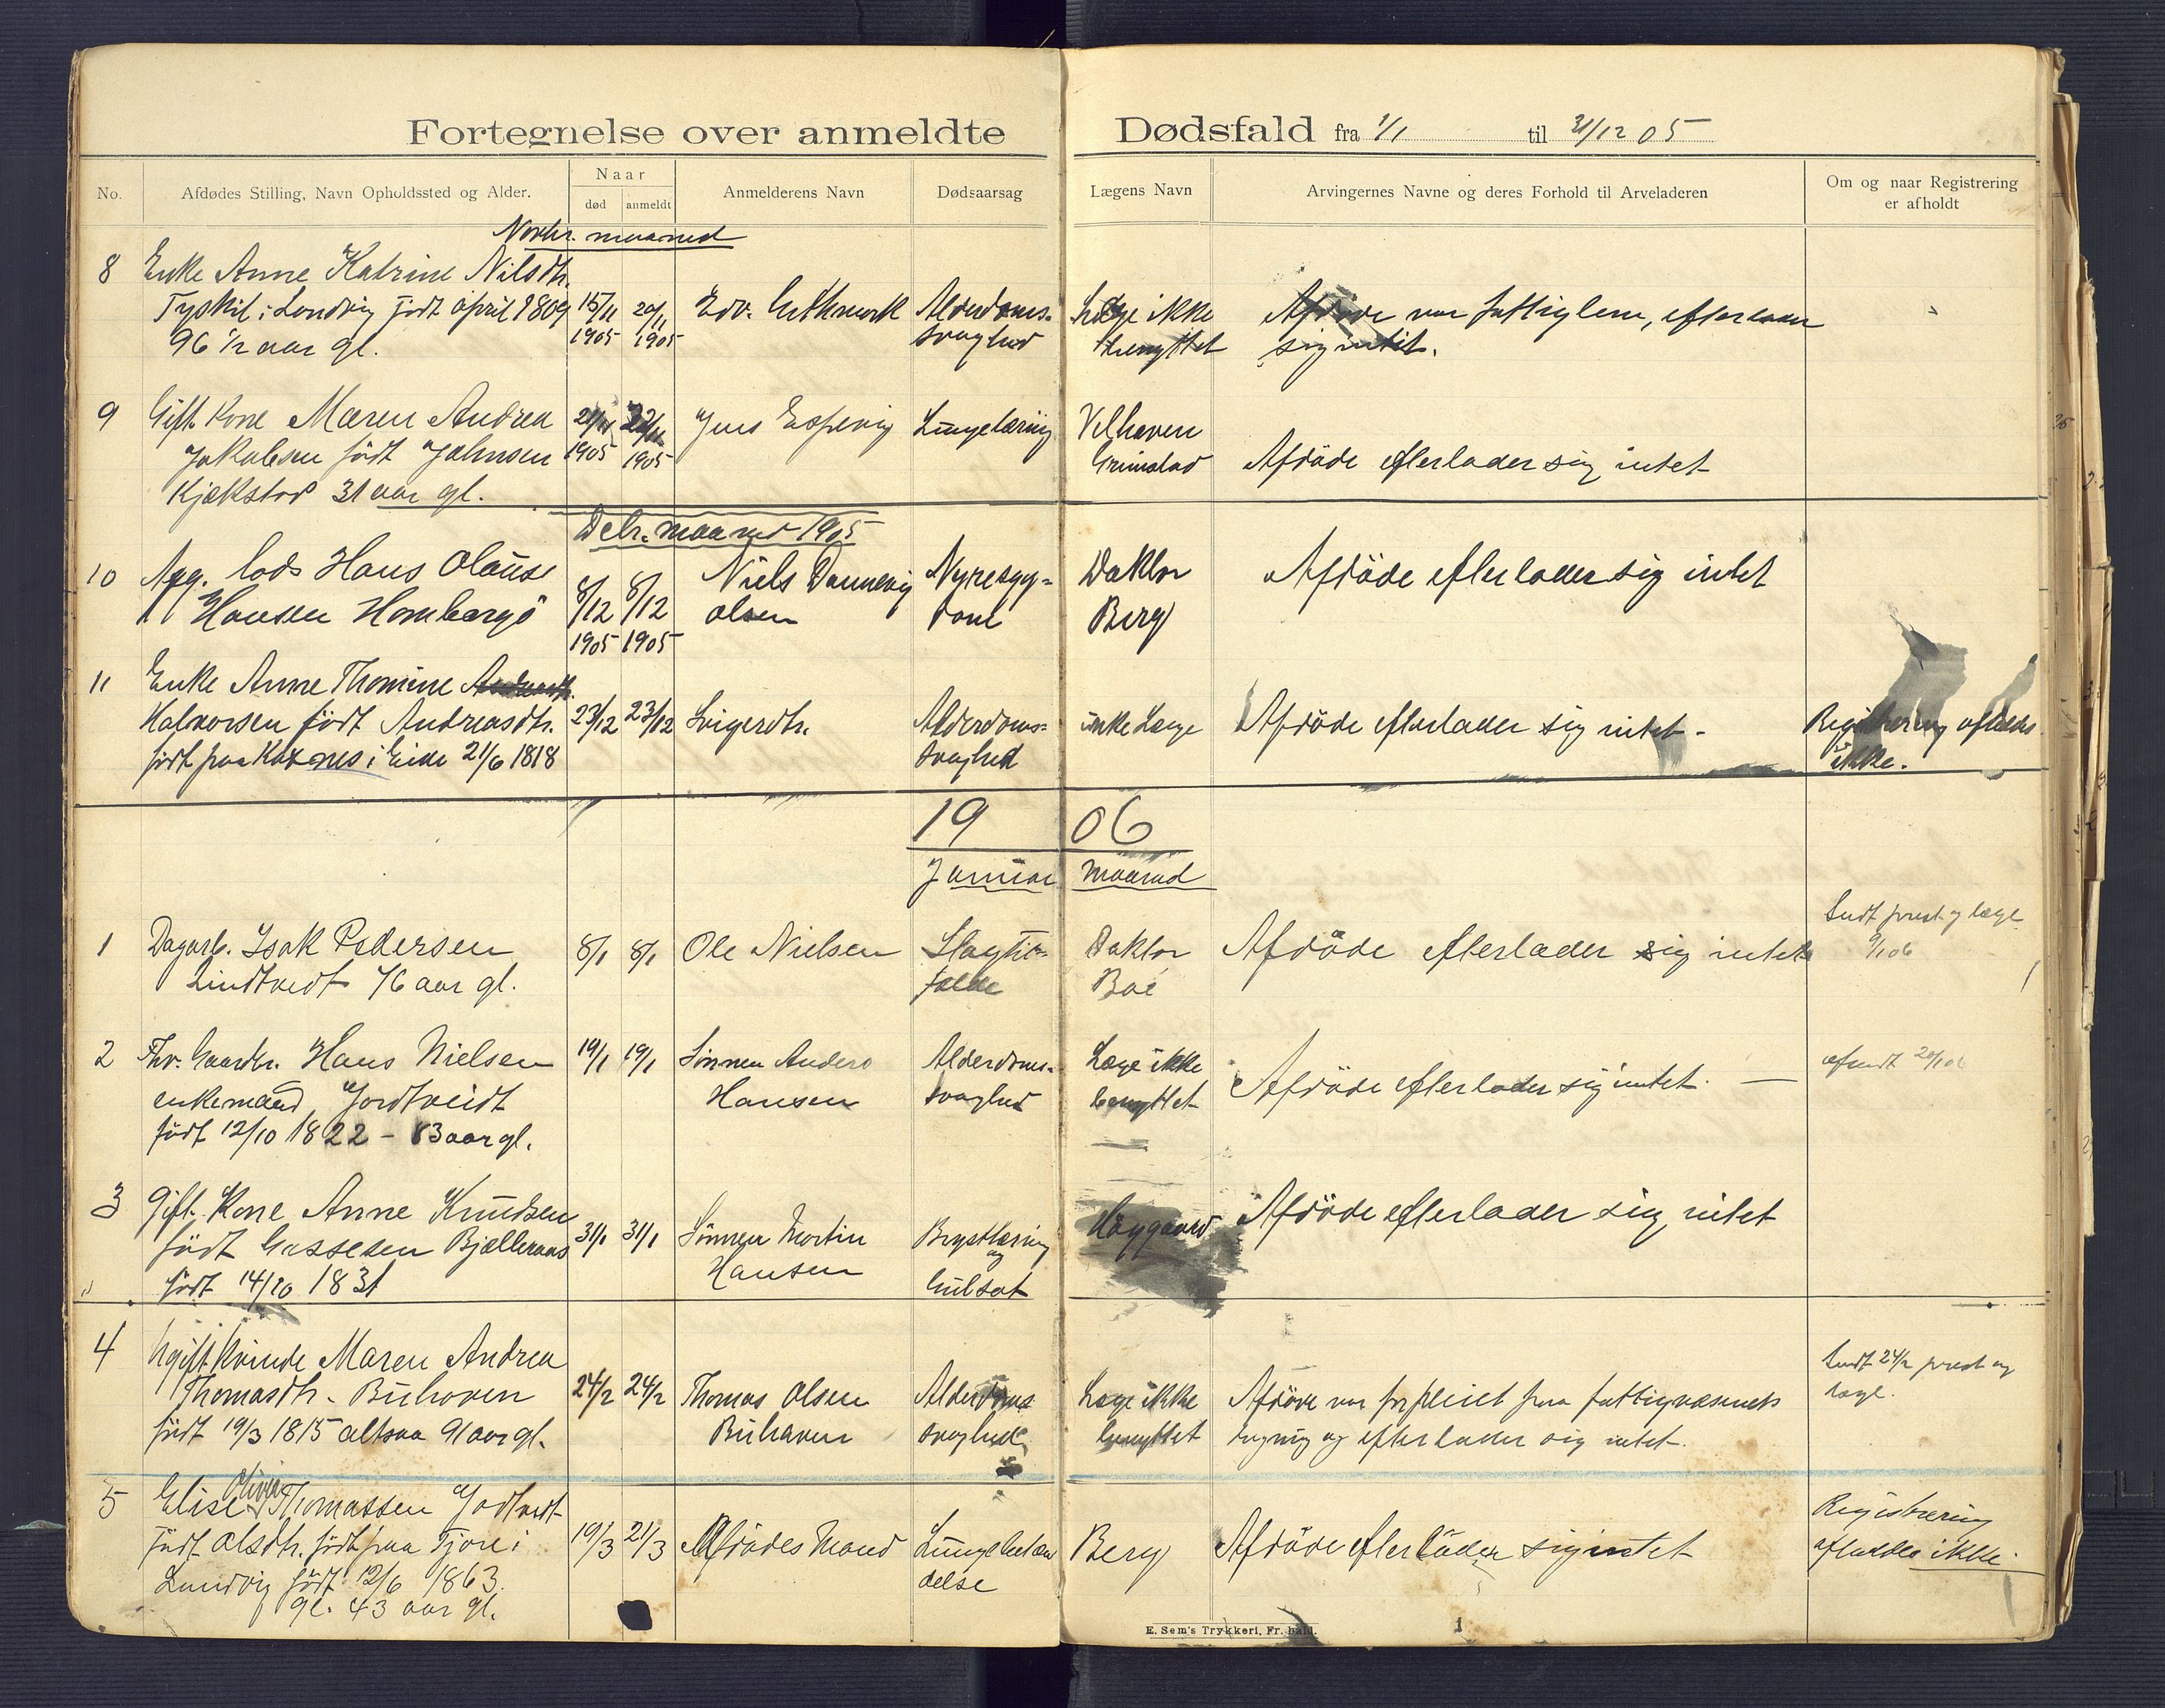 Fortegnelse over anmeldte Dødsfald fra 1/1 til 31/12 05
No.
Afdødes Stilling, Navn Opholdssted og Alder.
Naar
død
anmeldt
Anmelderens Navn
Dødsaarsag
Lægens Navn
Arvingernes Navne og deres Forhold til Arveladeren
Om og naar Registrering
er afholdt
Novbr. maaned
8 Enke Anne Katrine Nilsdtr.
i Landvig født april 1809
96 1/2 aar gl.
15/11 1905
20/11 1905
Edv.
Alderdoms-
svaghed
Læge ikke
benyttet
Afdøde var fattiglem, efterlader
sig intet.
9 Gift Kone Maren Andrea
Jakobsen født Johnsen
Kjækstad 31 aar gl.
21/11 1905
22/11 1905
Jens Espevig
Lungetæring
Velhaven
Grimstad
Afdøde efterlader sig intet
Debr. maaned 1905
10 Lods Hans Olaus
Hansen Homborgö
8/12 1905
8/12 1905
Niels Dannevig
Olsen
Nyresyg-
dom
Doktor
Berg
Afdøde efterlader sig intet
11 Enke Anne Thomine
Halvorsen født Andreasdtr.
født paa i Eide 21/6 1818
23/12
23/12
Svigerdtr.
Alderdoms-
svaghed
ikke Læge
Afdøde efterlader sig intet -
Registrering afholdes
ikke.
1906
Januar maaned
1 Dagarb. Isak Pedersen
Lindtveit 76 aar gl.
8/1
8/1
Ole Nielsen
Slagtil-
fælde
Doktor
Boe
Afdøde efterlader sig intet
Sendt prest og læge
9/1 06
2 Fhv. Gaardbr. Hans Nielsen
enkemand, Jordtveidt
født 12/10 1822 - 83 aar gl.
19/1
19/1
Sønnen Anders
Hansen
Alderdoms-
svaghed
Læge ikke
benyttet
Afdøde efterlader sig intet. —
20/1 06
3 Gift Kone Anne Knudsen
født Gassesen
født 14/10 1831
31/1
31/1
Sønnen Martin
Hansen
Brysttæring
og
Gulsot
Høygaard
Afdøde efterlader sig intet
4 Ugift Kvinde Maren Andrea
Thomasdtr. Buhaven
født 19/3 1815 altsaa 91 aar gl.
24/2
24/2
Thomas Olsen
Buhaven
Alderdoms
svaghed
Læge ikke
benyttet
Afdøde var forpleiet paa fattigvæsenets
regning og efterlader sig intet.
Sendt 24/2 prest og
læge.
5 Elise Olivia Thomassen Jortveit
født Olsdtr. født paa Fjære i
Landvig født 12/6 1863
gl. 43 aar gl.
19/3
21/3
Afdødes Mand
Lungebetæn
delse
Berg
Afdøde efterlader sig intet
Registrering
afholdes ikke.
E. Sem's Trykkeri, Fr.hald.
1